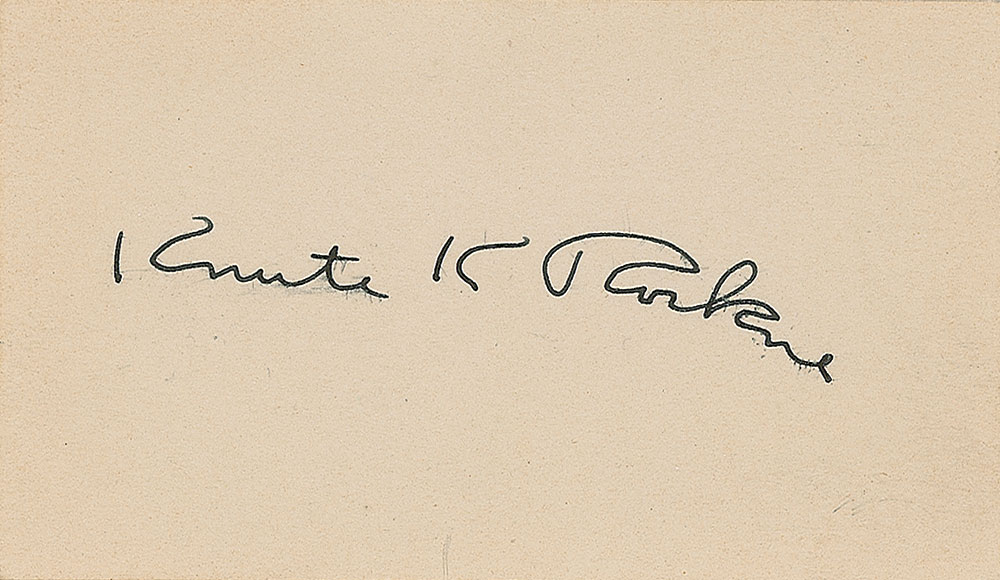 Knute K Rockne